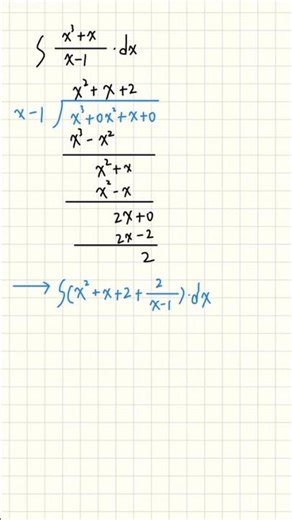 ∫ (x³+x)/(x-1) · dx
x² + x + 2
x-1 ) x³+0x²+x+0
x³ - x²
x²+x
x²-x
2x+0
2x-2
2
→ ∫(x²+x+2+ 2/(x-1))·dx